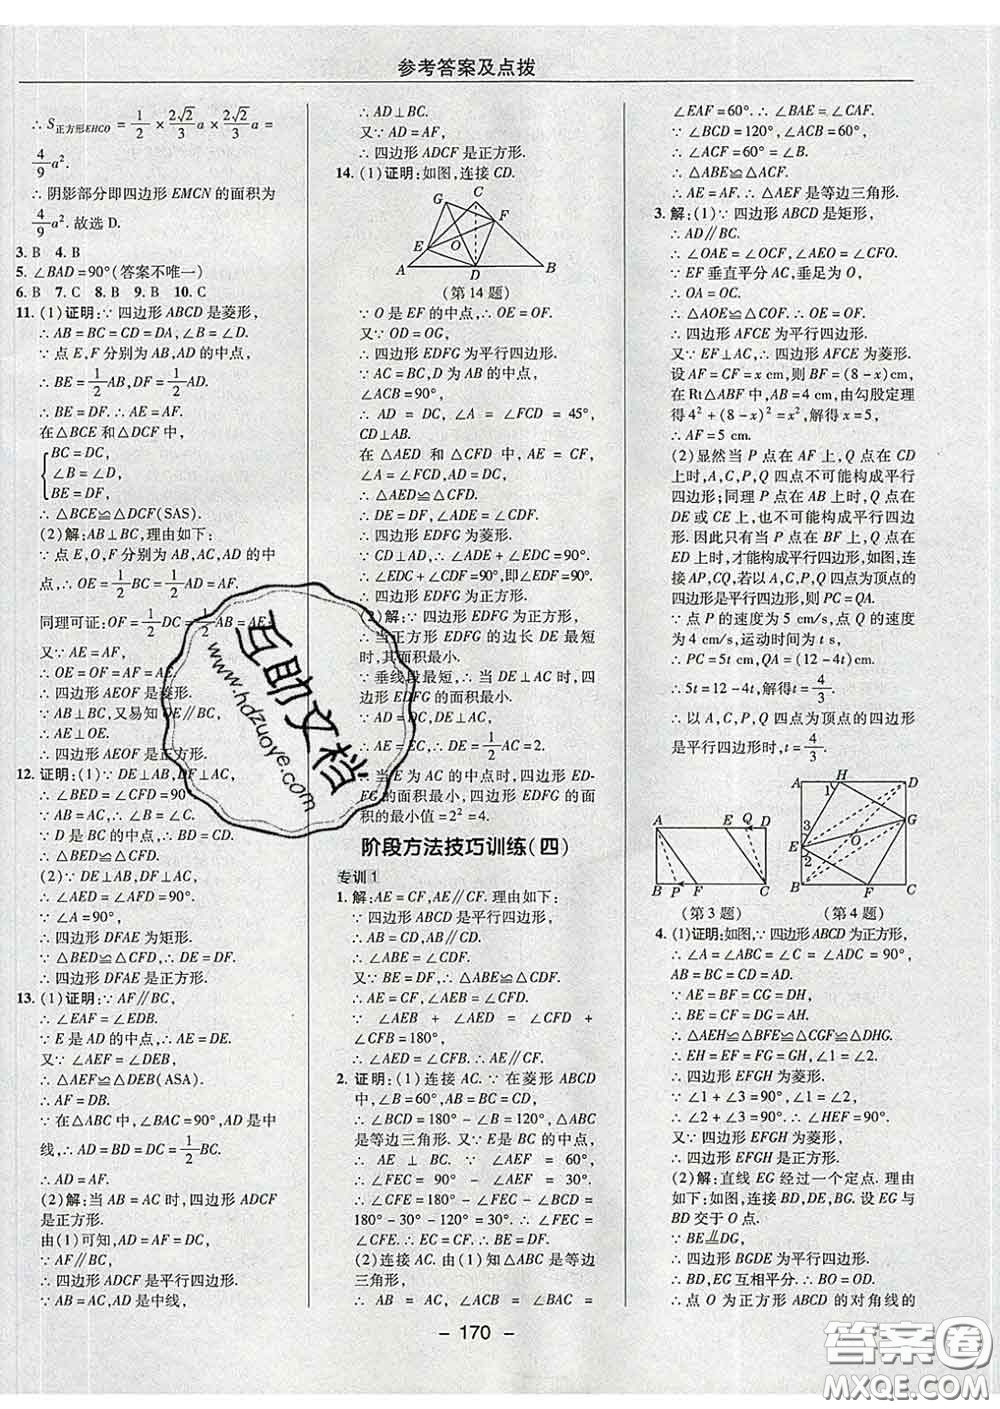 参考答案及点拨
∴S正方形EHCO = 1/2 × 2√2/3 a × 2√2/3 a =
4/9 a².
∴阴影部分即四边形 EMCN 的面积为
4/9 a². 故选 D.
3. B 4. B
5. ∠BAD = 90°(答案不唯一)
6. B 7. C 8. B 9. B 10. C
11. (1)证明:∵四边形 ABCD 是菱形,
∴AB = BC = CD = DA,∠B = ∠D.
∵点 E,F 分别为 AB,AD 的中点,
∴BE = 1/2 AB,DF = 1/2 AD.
∴BE = DF. ∴AE = AF.
在△BCE 和△DCF 中,
BC = DC,
∠B = ∠D,
BE = DF,
∴△BCE≌△DCF(SAS).
(2)解:AB⊥BC,理由如下:
∵点 E,O,F 分别为 AB,AC,AD 的中
点,∴OE = 1/2 BC = 1/2 AD = AF.
同理可证:OF = 1/2 DC = 1/2 AB = AE,
又∵AE = AF,
∴OE = OF = AF = AE.
∴四边形 AEOF 是菱形.
∵AB⊥BC,又易知 OE∥BC,
∴AE⊥OE.
∴四边形 AEOF 是正方形.
12. 证明:(1)∵DE⊥AB,DF⊥AC,
∴∠BED = ∠CFD = 90°.
∵AB = AC,∴∠B = ∠C.
∵D 是 BC 的中点,∴BD = CD.
∴△BED≌△CFD.
(2)∵DE⊥AB,DF⊥AC,
∴∠AED = ∠AFD = 90°.
∵∠A = 90°,
∴四边形 DFAE 为矩形.
∵△BED≌△CFD,∴DE = DF.
∴四边形 DFAE 是正方形.
13. (1)证明:∵AF∥BC,
∴∠EAF = ∠EDB.
∵E 是 AD 的中点,∴AE = DE.
又∵∠AEF = ∠DEB,
∴△AEF≌△DEB(ASA).
∴AF = DB.
∵在△ABC 中,∠BAC = 90°,AD 是中
线,∴AD = BD = DC = 1/2 BC.
∴AD = AF.
(2)解:当 AB = AC 时,四边形 ADCF
是正方形.
由(1)可知,AF = DB = DC,
∵AF∥BC,
∴四边形 ADCF 是平行四边形.
∵AB = AC,AD 是中线,
∴AD⊥BC.
又∵AD = AF,
∴四边形 ADCF 是正方形.
14. (1)证明:如图,连接 CD.
G C F E O A D B
(第 14 题)
∵O 是 EF 的中点,∴OE = OF.
又∵OD = OG,
∴四边形 EDFG 为平行四边形.
∵AC = BC,D 为 AB 的中点,
∠ACB = 90°,
∴AD = DC,∠A = ∠FCD = 45°,
CD⊥AB.
在△AED 和△CFD 中,AE = CF,
∠A = ∠FCD,AD = CD,
∴△AED≌△CFD.
∴DE = DF,∠ADE = ∠CDF.
∴四边形 EDFG 为菱形.
∵CD⊥AD,∴∠ADE + ∠EDC = 90°.
∴∠EDC + ∠CDF = 90°,即∠EDF = 90°.
∴四边形 EDFG 为正方形.
(2)解:∵四边形 EDFG 为正方形,
∴当正方形 EDFG 的边长 DE 最短
时,其面积最小.
∵垂线段最短,∴当 DE⊥AC 时,四
边形 EDFG 的面积最小.
∵AD = DC,DE⊥AC,
∴AE = EC,∴DE = 1/2 AC = 2.
∴当 E 为 AC 的中点时,四边形 ED-
FG 的面积最小,四边形 EDFG 的面积
的最小值 = 2² = 4.
阶段方法技巧训练(四)
专训 1
1. 解:AE = CF,AE∥CF. 理由如下:
∵四边形 ABCD 是平行四边形,
∴AB = CD,AB∥CD.
∴∠ABE = ∠CDF.
又∵BE = DF,∴△ABE≌△CDF.
∴AE = CF,∠AEB = ∠CFD.
∵∠AEB + ∠AED = ∠CFD +
∠CFB = 180°,
∴∠AED = ∠CFB. ∴AE∥CF.
2. 证明:(1)连接 AC. ∵在菱形 ABCD
中,∠B = 60°,AB = BC = CD,
∴∠BCD = 180° - ∠B = 120°,△ABC
是等边三角形. 又∵E 是 BC 的中点,
∴AE⊥BC. ∵∠AEF = 60°,
∴∠FEC = 90° - ∠AEF = 30°.
∴∠CFE = 180° - ∠FEC - ∠BCD =
180° - 30° - 120° = 30°. ∴∠FEC =
∠CFE. ∴EC = CF. ∴BE = DF.
(2)连接 AC. 由(1)知△ABC 是等边
三角形,
∴AB = AC,∠ACB = ∠BAC =
∠EAF = 60°. ∴∠BAE = ∠CAF.
∵∠BCD = 120°,∠ACB = 60°,
∴∠ACF = 60° = ∠B.
∴△ABE≌△ACF.
∴AE = AF. ∴△AEF 是等边三角形.
3. 解:(1)∵四边形 ABCD 是矩形,
∴AD∥BC.
∴∠OAE = ∠OCF,∠AEO = ∠CFO.
∵EF 垂直平分 AC,垂足为 O,
∴OA = OC.
∴△AOE≌△COF. ∴OE = OF.
∴四边形 AFCE 为平行四边形.
又∵EF⊥AC,∴四边形 AFCE 为菱形.
设 AF = CF = x cm,则 BF = (8 - x) cm,
在 Rt△ABF 中,AB = 4 cm,由勾股定理
得 4² + (8 - x)² = x²,解得 x = 5,
∴AF = 5 cm.
(2)显然当 P 点在 AF 上,Q 点在 CD
上时,A,C,P,Q 四点不可能构成平行
四边形;同理 P 点在 AB 上时,Q 点在
DE 或 CE 上,也不可能构成平行四边
形. 因此只有当 P 点在 BF 上,Q 点在
ED 上时,才能构成平行四边形,如图,连
接 AP,CQ,若以 A,C,P,Q 四点为顶点的
四边形是平行四边形,则 PC = QA.
∵点 P 的速度为 5 cm/s,点 Q 的速
度为 4 cm/s,运动时间为 t s,
∴PC = 5t cm,QA = (12 - 4t) cm.
∴5t = 12 - 4t,解得 t = 4/3.
∴以 A,C,P,Q 四点为顶点的四边形
是平行四边形时,t = 4/3.
A E Q D B P F C
(第 3 题)
A H D 1 G 3 E 2 B F C
(第 4 题)
4. (1)证明:如图,∵四边形 ABCD 为正方形,
∴∠A = ∠ABC = ∠C = ∠ADC = 90°,
AB = BC = CD = AD.
∵AE = BF = CG = DH,
∴BE = CF = DG = AH.
∴△AEH≌△BFE≌△CGF≌△DHG.
∴EH = FE = GF = HG,∠1 = ∠2.
∴四边形 EFGH 为菱形.
∵∠1 + ∠3 = 90°,∠1 = ∠2,
∴∠2 + ∠3 = 90°. ∴∠HEF = 90°.
又∵四边形 EFGH 为菱形,
∴四边形 EFGH 是正方形.
(2)解:直线 EG 经过一个定点. 理由
如下:如图,连接 BD,DE,BG. 设 EG 与
BD 交于 O 点.
∵BE∥=DG,
∴四边形 BGDE 为平行四边形.
∴BD,EG 互相平分. ∴BO = OD.
∴点 O 为正方形 ABCD 的对角线的
- 170 -
互助文档
www.hdzuoye.com
答案圈
MXQE.COM